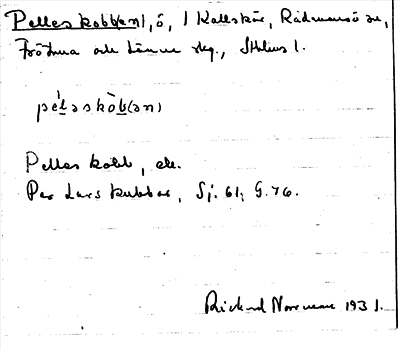 Pelles kobb(en), ö, i Kallskär, Rådmansö sn,
Frötuna och Länna skg., Sthlms l.
pélәskòb(әn)
Pelles kobb, ek.
Per Lars kubbar, Sj. 61; G. 76.
Rickard Norrman 1931.